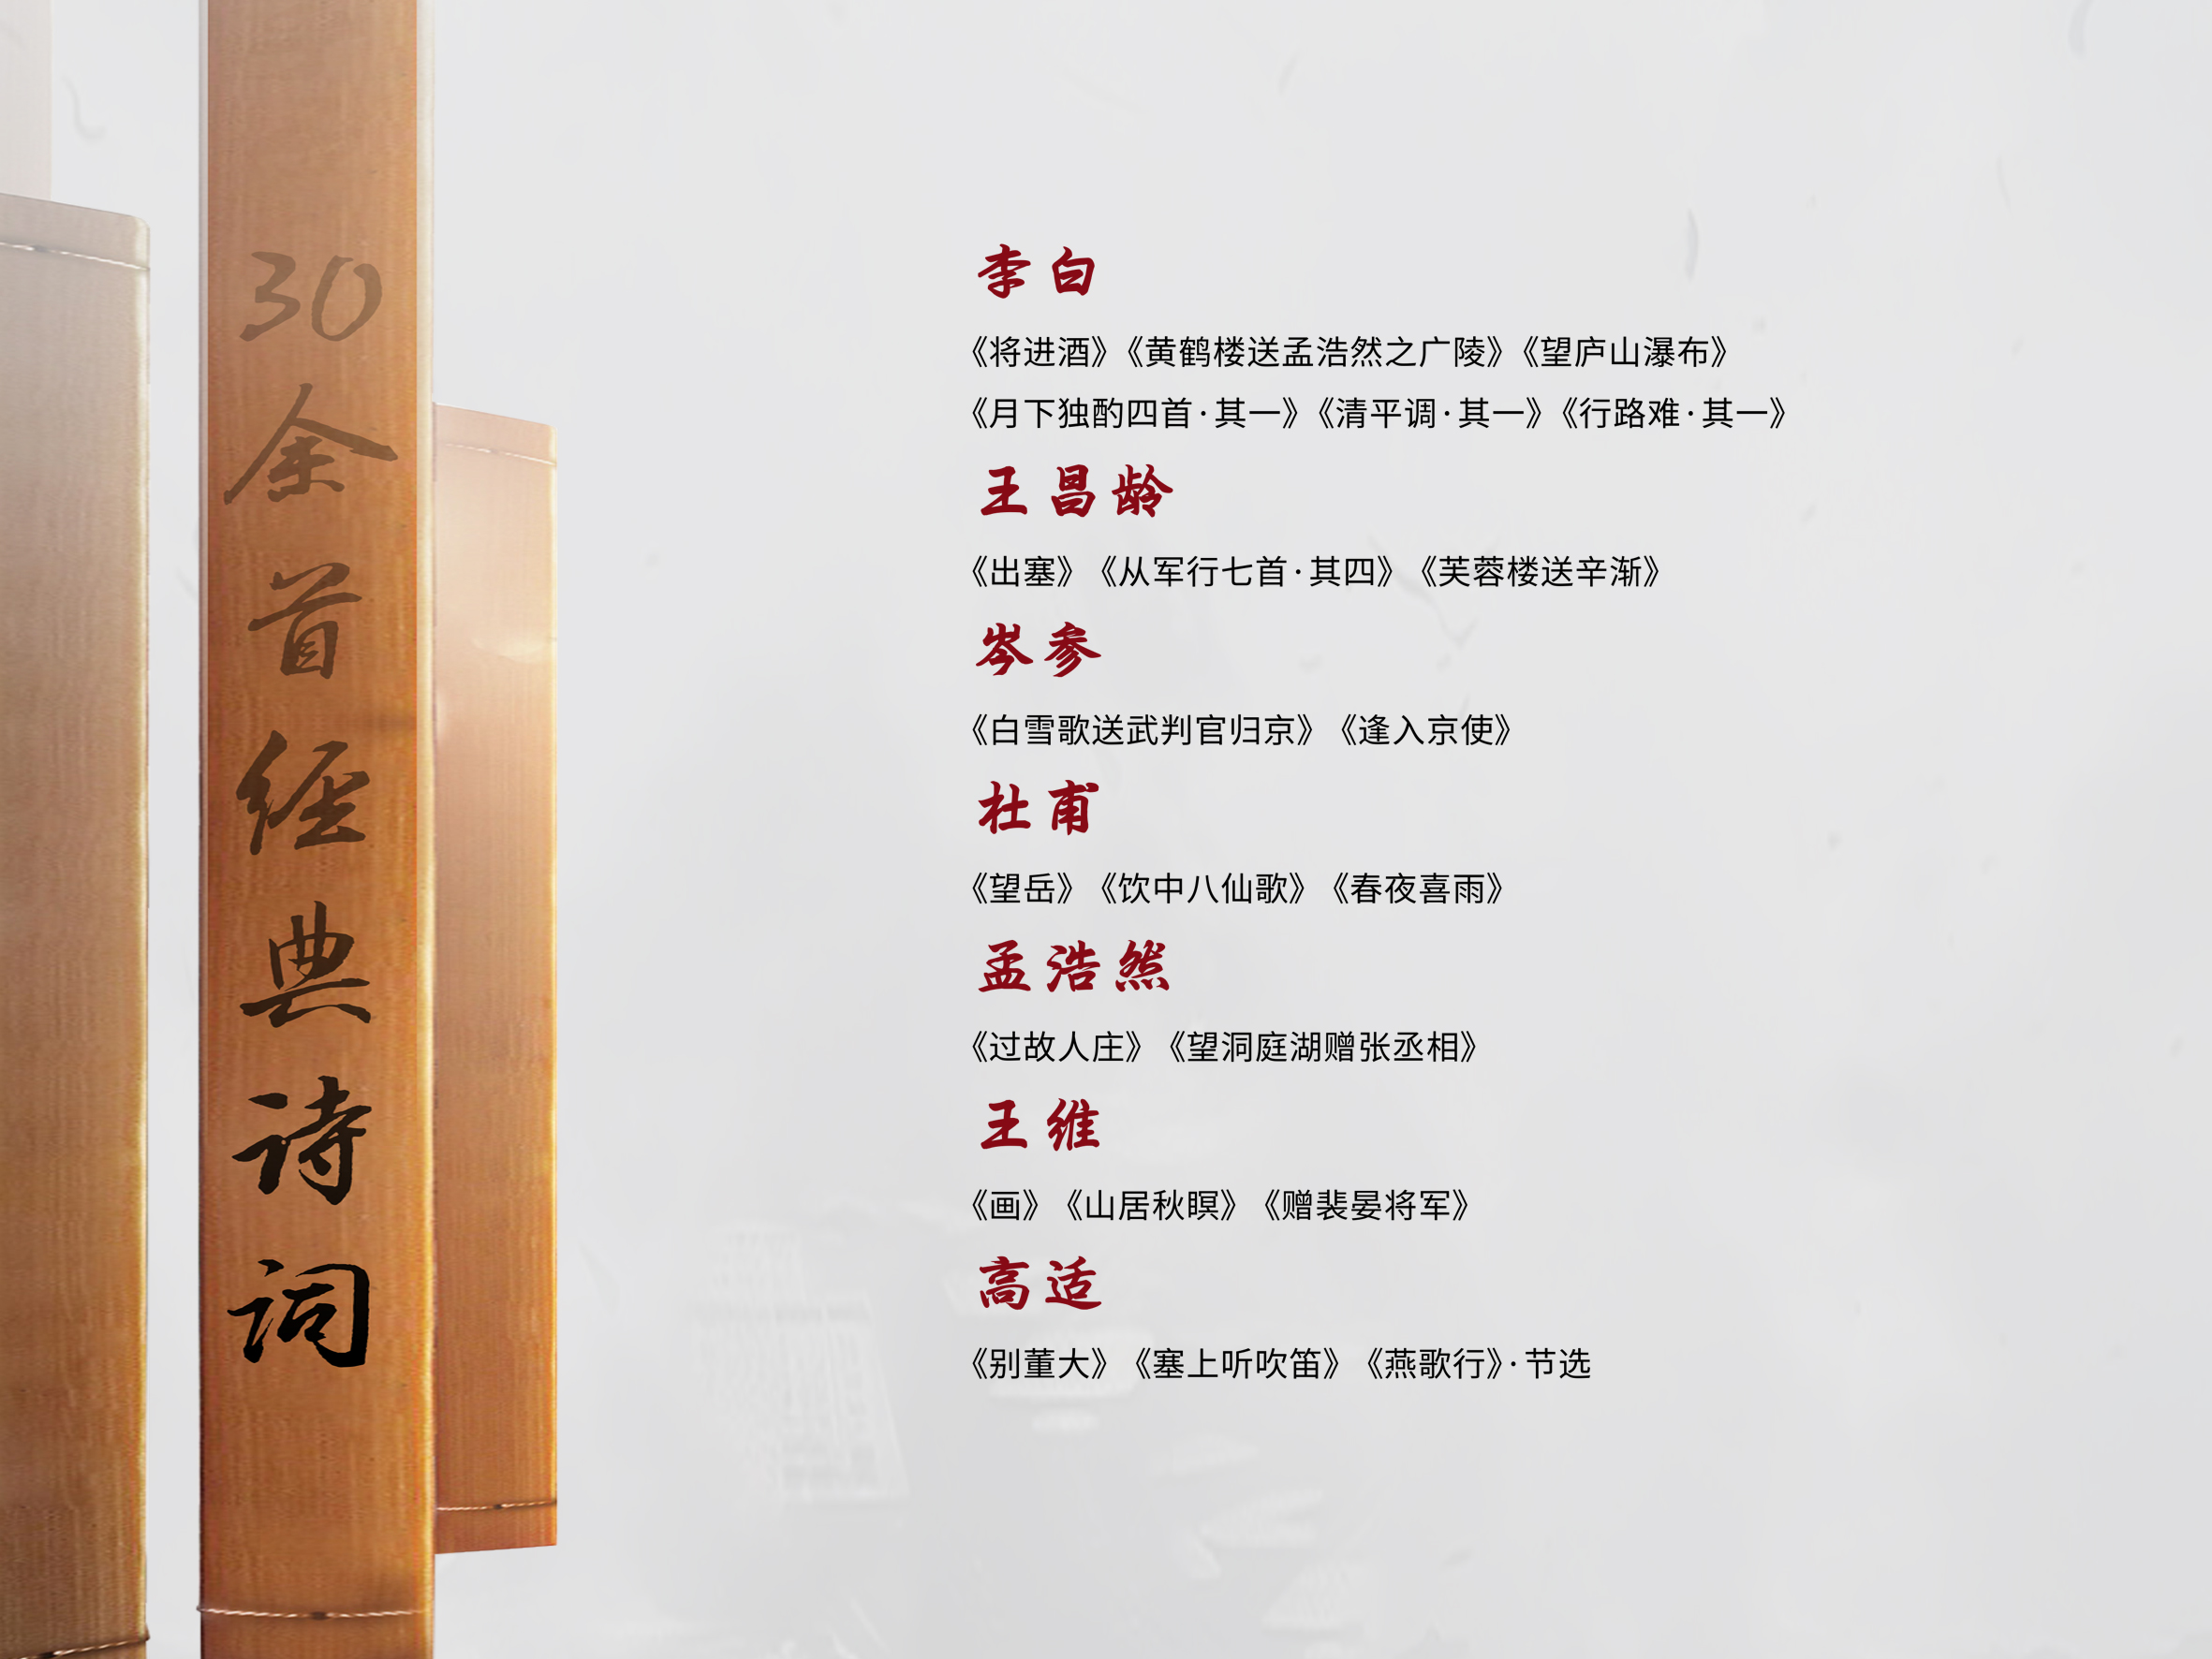 30余首经典诗词
李白
《将进酒》《黄鹤楼送孟浩然之广陵》《望庐山瀑布》
《月下独酌四首·其一》《清平调·其一》《行路难·其一》
王昌龄
《出塞》《从军行七首·其四》《芙蓉楼送辛渐》
岑参
《白雪歌送武判官归京》《逢入京使》
杜甫
《望岳》《饮中八仙歌》《春夜喜雨》
孟浩然
《过故人庄》《望洞庭湖赠张丞相》
王维
《画》《山居秋暝》《赠裴旻将军》
高适
《别董大》《塞上听吹笛》《燕歌行》·节选